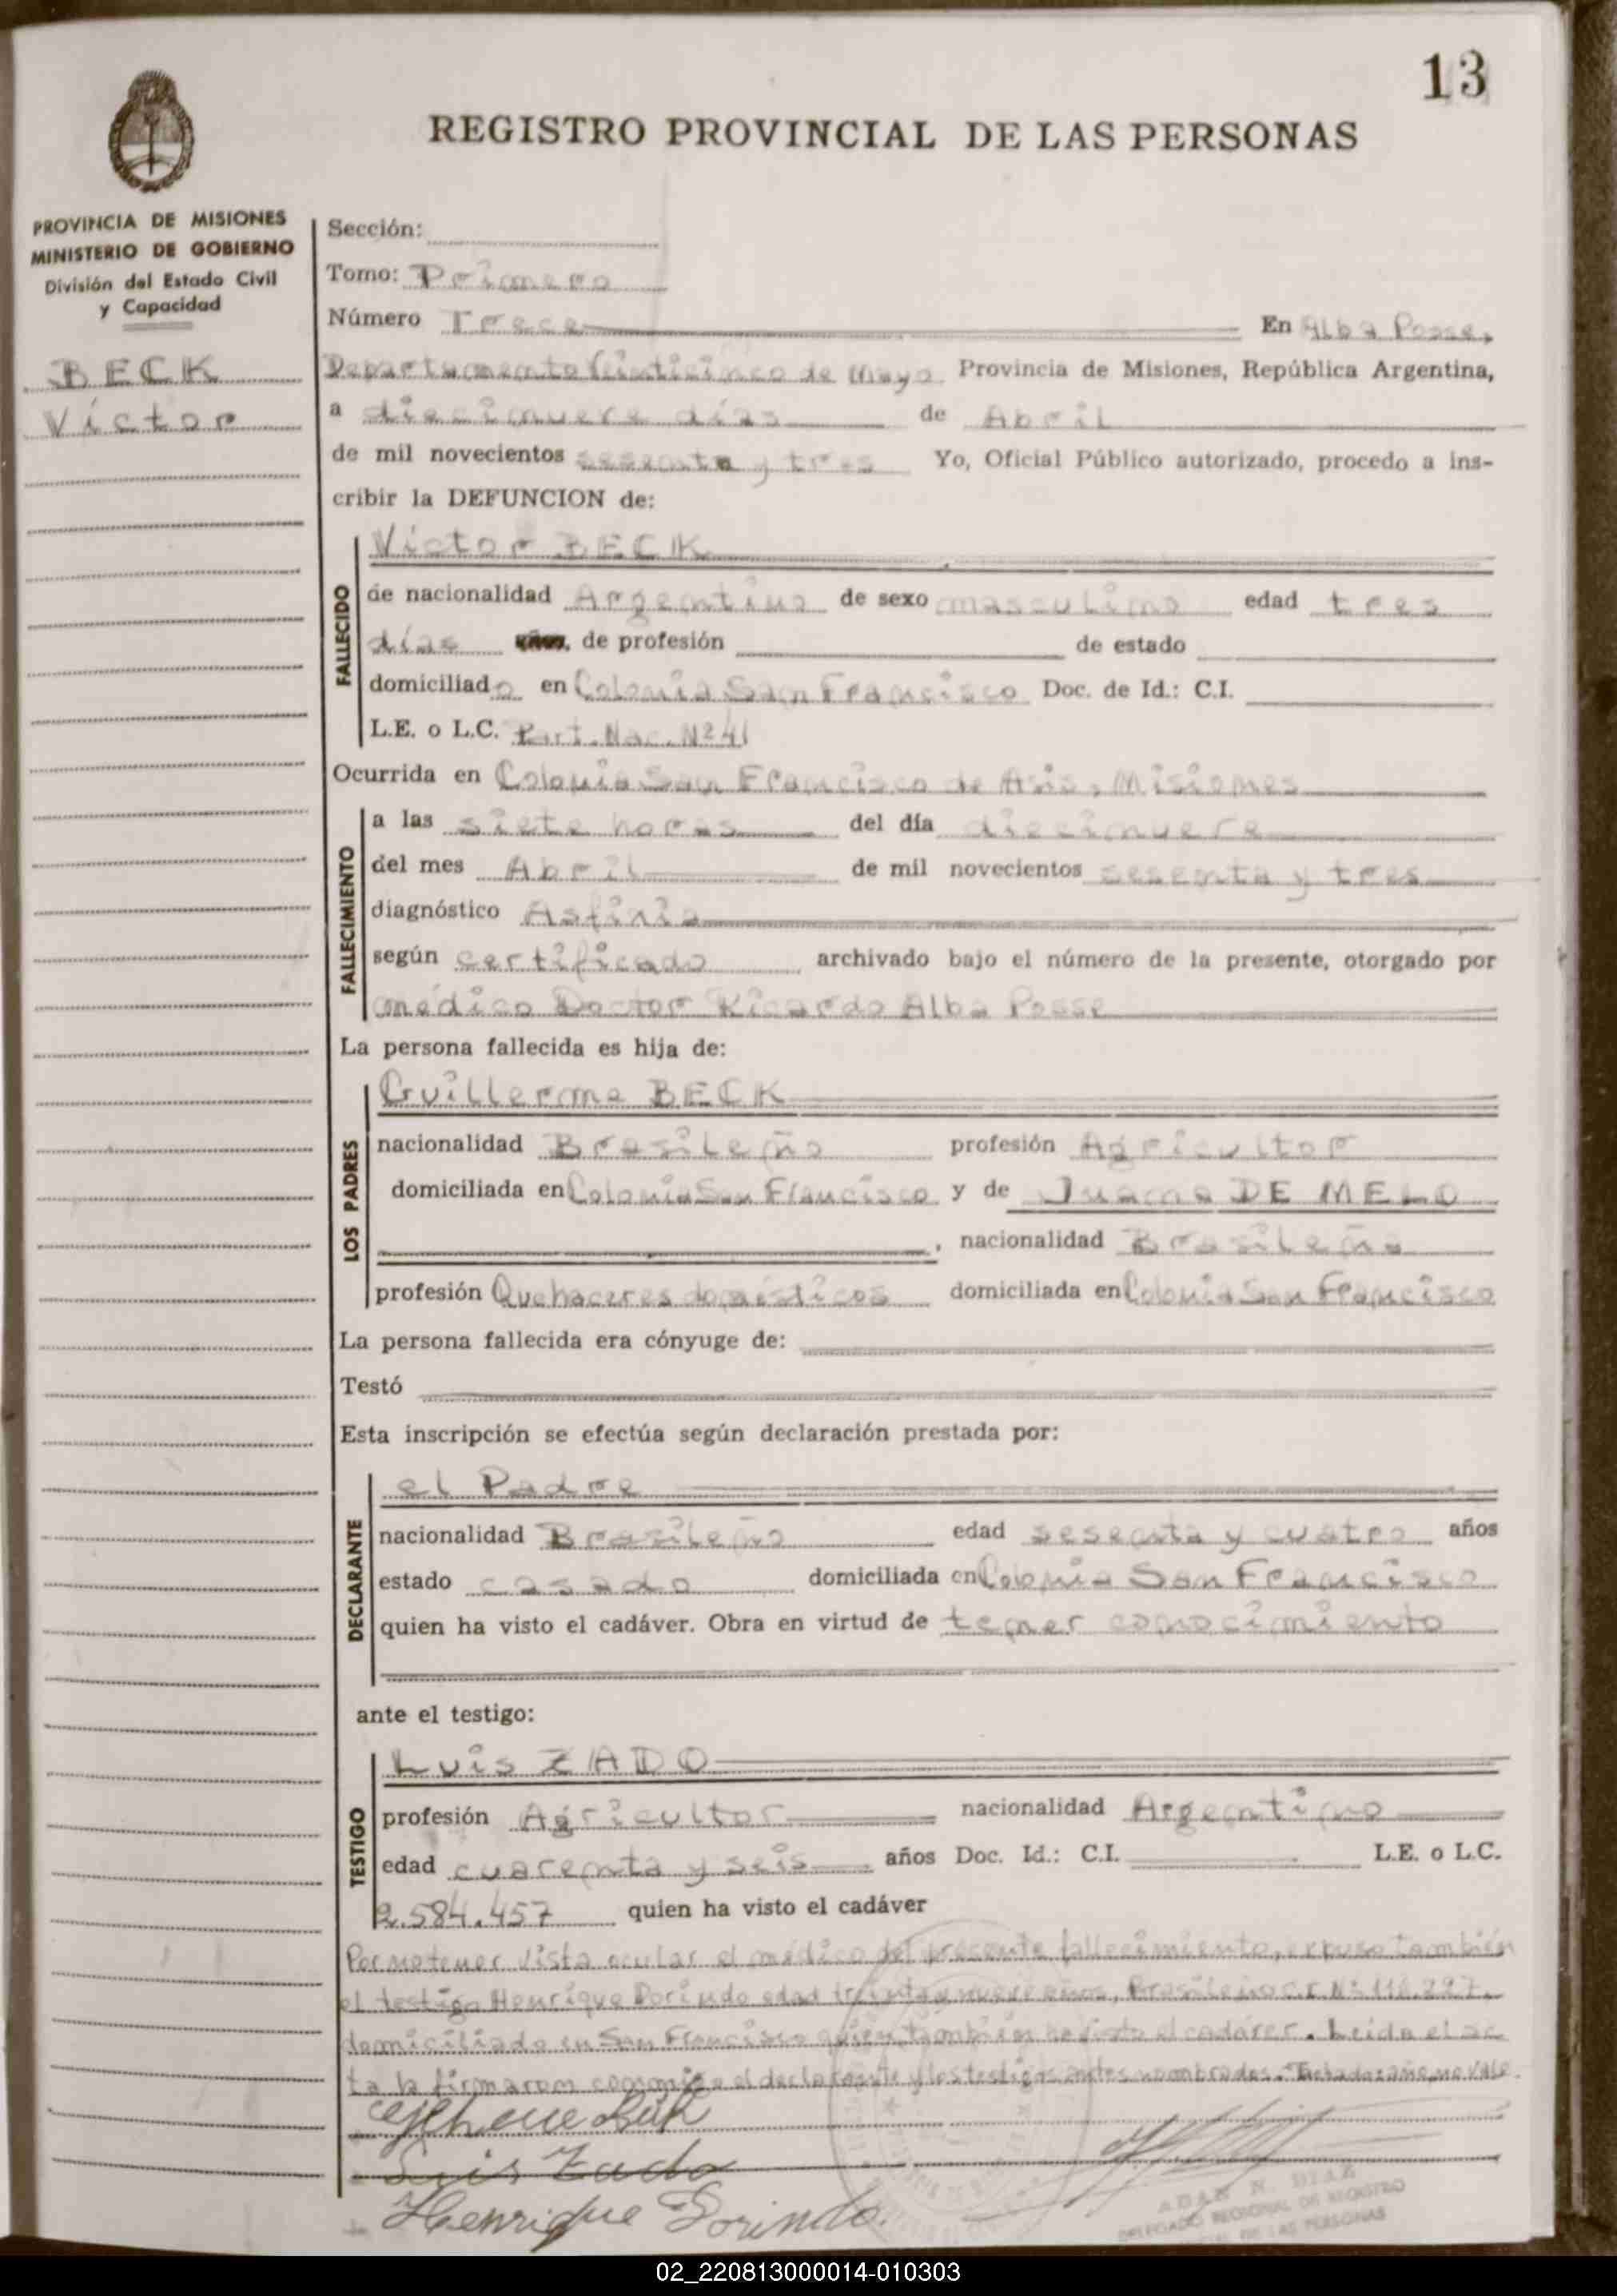 13
REGISTRO PROVINCIAL DE LAS PERSONAS
PROVINCIA DE MISIONES
MINISTERIO DE GOBIERNO
División del Estado Civil
y Capacidad
BECK
Víctor
Sección:
Tomo: Primero
Número Trece En Alba Posse,
Departamento Veinticinco de Mayo Provincia de Misiones, República Argentina,
a diecinueve días de Abril
de mil novecientos sesenta y tres Yo, Oficial Público autorizado, procedo a ins-
cribir la DEFUNCION de:
FALLECIDO
Víctor BECK
de nacionalidad Argentino de sexo masculino edad tres
días años, de profesión de estado
domiciliado en Colonia San Francisco Doc. de Id.: C.I.
L.E. o L.C. Part. Nac. Nº 41
Ocurrida en Colonia San Francisco de Asis, Misiones
FALLECIMIENTO
a las siete horas del día diecinueve
del mes Abril de mil novecientos sesenta y tres
diagnóstico Asfixia
según certificado archivado bajo el número de la presente, otorgado por
médico Doctor Ricardo Alba Posse
La persona fallecida es hija de:
LOS PADRES
Guillermo BECK
nacionalidad Brasileño profesión Agricultor
domiciliada en Colonia San Francisco y de Juana DE MELO
, nacionalidad Brasileña
profesión Quehaceres domésticos domiciliada en Colonia San Francisco
La persona fallecida era cónyuge de:
Testó
Esta inscripción se efectúa según declaración prestada por:
DECLARANTE
el Padre
nacionalidad Brasileño edad sesenta y cuatro años
estado casado domiciliada en Colonia San Francisco
quien ha visto el cadáver. Obra en virtud de tener conocimiento
ante el testigo:
TESTIGO
Luis ZADO
profesión Agricultor nacionalidad Argentino
edad cuarenta y seis años Doc. Id.: C.I. L.E. o L.C.
2.584.457 quien ha visto el cadáver
Por no tener vista ocular el médico del presente fallecimiento, expuso también
el testigo Henrique Dorindo edad treinta y nueve años, Brasileño C.I. Nº 118.297.
domiciliado en San Francisco quien también ha visto el cadáver. Leída el ac
ta la firmaron conmigo el declarante y los testigos antes nombrados. Tachado: año, no vale.
Luis Zado
Henrique Dorindo.
ADAN N. DIAZ
DELEGADO REGIONAL DE REGISTRO
DE LAS PERSONAS
02_220813000014-010303